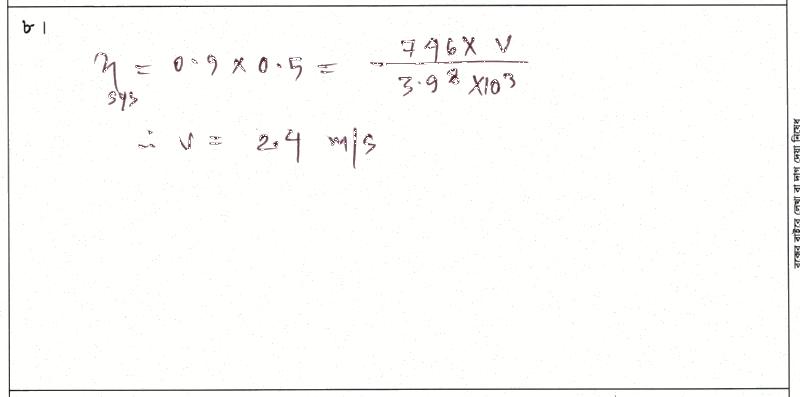 ৮।
η_sys = 0.9 × 0.5 = 746 × V / 3.9² × 10³
∴ V = 2.4 m/s
বক্সের বাইরে লেখা বা দাগ দেয়া নিষেধ